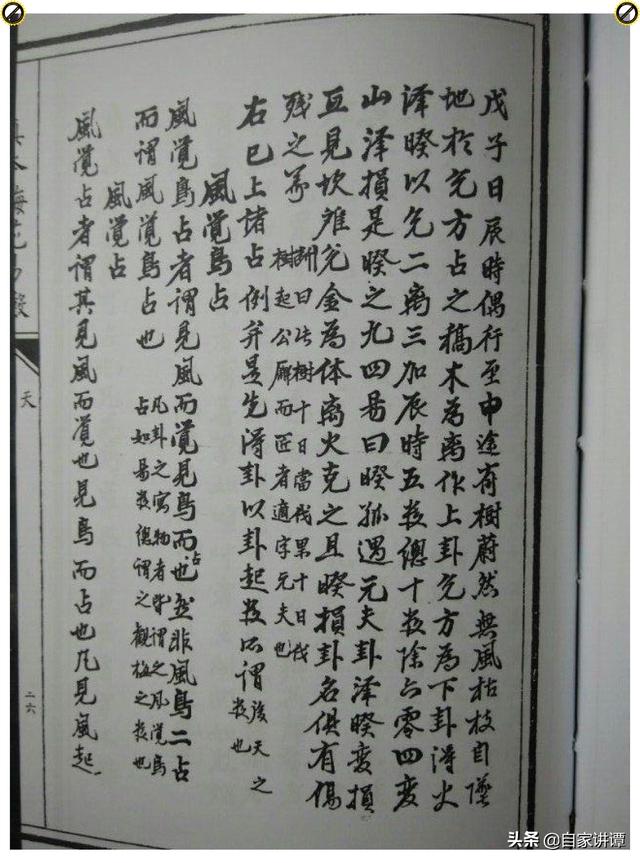 戊子日辰時偶行至中途有樹蔚然無風枯枝自墜
地於兊方占之槁木為离作上卦兊方為下卦淂火
泽暌以兊二离三加辰時五数總十数除六零四变
山泽損是暌之九四易曰暌孤遇元夫卦泽暌变損
互見坎雄兊金為体离火克之且暌損卦名俱有傷
残之義
断曰此樹十日當伐果十日伐
樹起公廨而匠者適字元夫也
右已上諸占例并是先淂卦以卦起数所謂
後天之
数也
風覺鳥占
風覺鳥占者謂見風而覺見鳥而占也並非風鳥二占
而谓風覺鳥占也
凡卦之寓物者皆谓之凡覺鳥
占如易数總谓之觀梅之数也
風覺占
風覺占者谓其見風而覺也見鳥而占也凡見風起
梅花易
天
二六
头条@自家讲谭